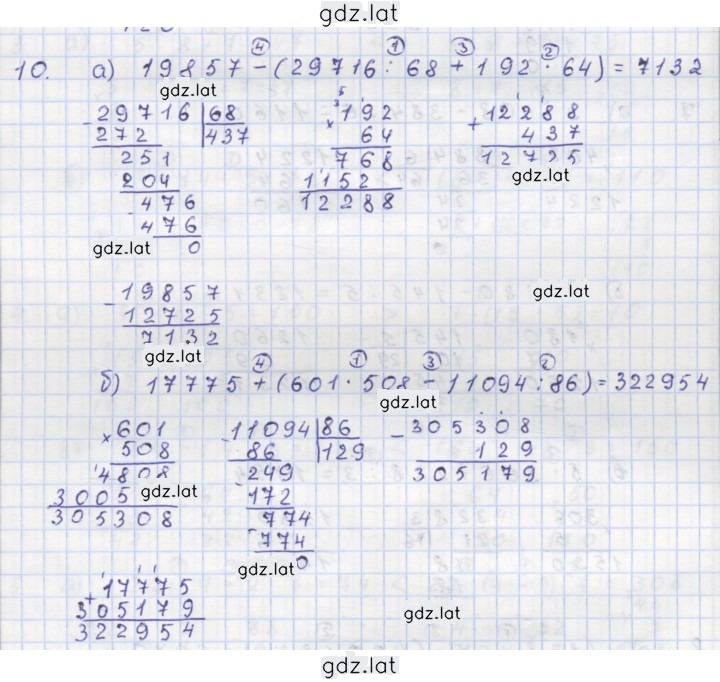 gdz.lat
10. а) 19857 - (29716 : 68 + 192 · 64) = 7132
④ ① ③ ②
gdz.lat
- 29716 | 68
272 | 437
251
204
- 476
476
0
gdz.lat
× 192
64
768
1152
12288
+ 12288
437
12725
gdz.lat
- 19857
12725
7132
gdz.lat
gdz.lat
б) 17775 + (601 · 508 - 11094 : 86) = 322954
④ ① ③ ②
gdz.lat
× 601
508
4808
3005
gdz.lat
305308
- 11094 | 86
86 | 129
- 249
172
- 774
774
0
gdz.lat
- 305308
129
305179
+ 17775
305179
322954
gdz.lat
gdz.lat